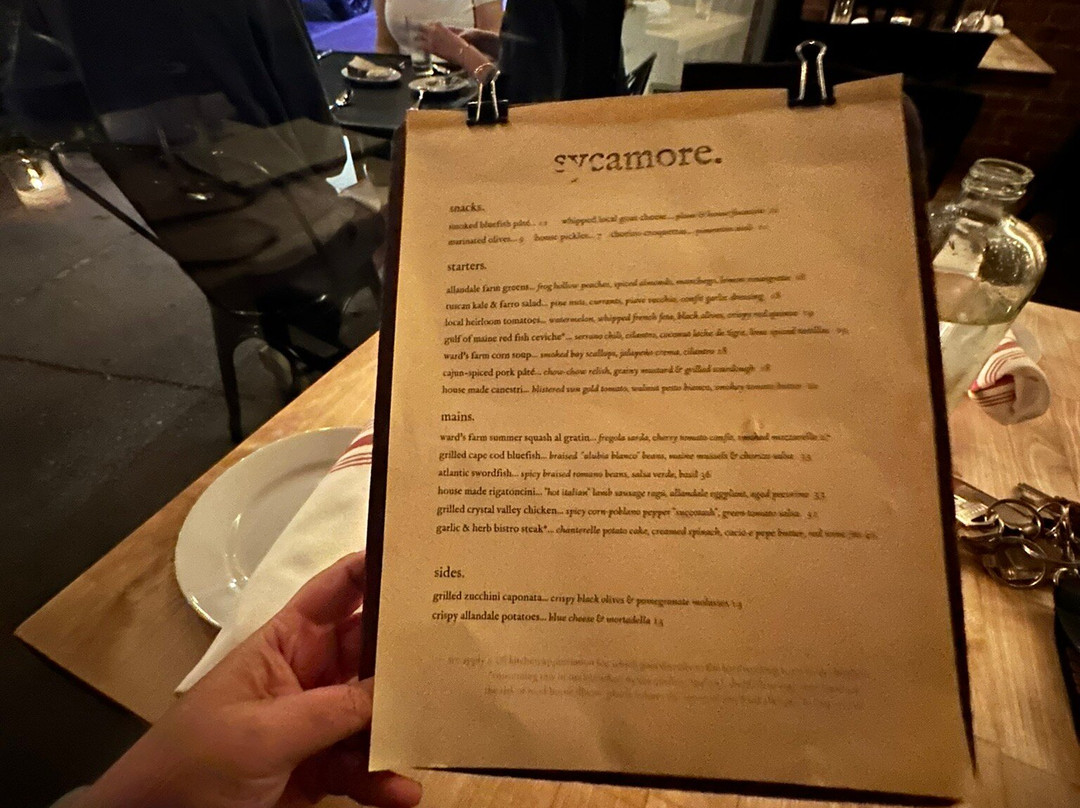 sycamore.
snacks.
smoked bluefish pâté... whipped local goat cheese...
marinated olives... 9 house pickles... 7 chorizo croquettas... pimenton aioli
starters.
allandale farm greens... frog hollow peaches, spiced almonds, manchego, lemon vinaigrette
tuscan kale & farro salad... pine nuts, currants, piave vecchio, confit garlic dressing 18
local heirloom tomatoes... watermelon, whipped french feta, black olives, crispy red quinoa 19
gulf of maine red fish ceviche*... serrano chili, cilantro, coconut leche de tigre, lime spiced tortillas
ward's farm corn soup... smoked bay scallops, jalapeño crema, cilantro 18
cajun-spiced pork pâté... chow-chow relish, grainy mustard & grilled sourdough 18
house made canestri... blistered sun gold tomato, walnut pesto bianco, smokey tomato butter
mains.
ward's farm summer squash al gratin... fregola sarda, cherry tomato confit, smoked mozzarella 27
grilled cape cod bluefish... braised "alubia blanco" beans, maine mussels & chorizo salsa 33
atlantic swordfish... spicy braised romano beans, salsa verde, basil 36
house made rigatoncini... "hot italian" lamb sausage ragu, allandale eggplant, aged pecorino 33
grilled crystal valley chicken... spicy corn-poblano pepper "succotash", green tomato salsa 32
garlic & herb bistro steak*... chanterelle potato cake, creamed spinach, cacio e pepe butter, red wine jus
sides.
grilled zucchini caponata... crispy black olives & pomegranate molasses 13
crispy allandale potatoes... blue cheese & mortadella 13